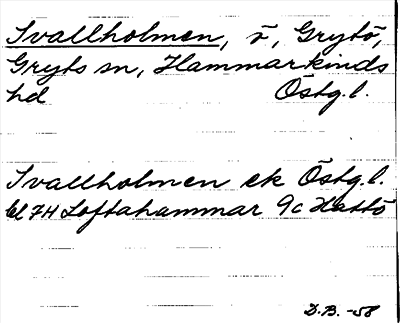 Svallholmen, ö, Grytö,
Gryts sn, Hammarkinds
hd Östg.l.
Svallholmen ek Östg.l.
bl 7H Loftahammar 9c Hattö
D.B. -58